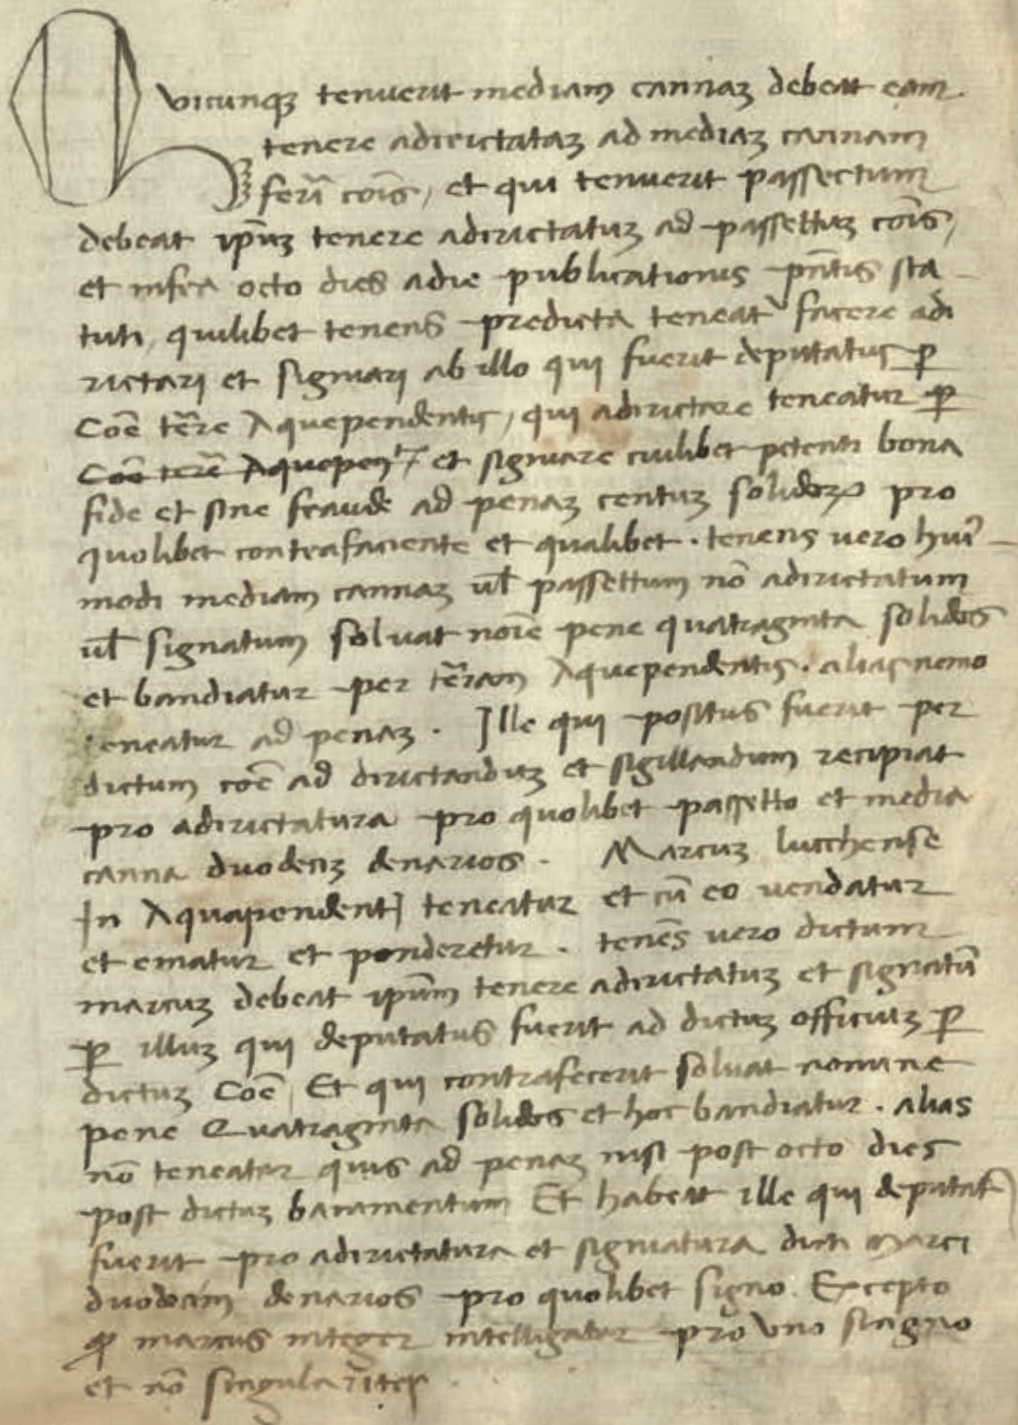 Quicunqꝫ tenuerit mediam cannaꝫ debeat eam
tenere adirictataꝫ ad mediaꝫ cannam
ferĩ coĩs, et qui tenuerit passectum
debeat ip̃uꝫ tenere adirictatuꝫ ad passettuꝫ coĩs,
et infra octo dies a die publicationis pñtis sta
tuti, quilibet tenens predicta teneat᷑ facere adi
rictari et signari ab illo qui fuerit deputatus ꝑ
Coẽ tẽre Aquependentis, qui adirictare teneatur ꝑ
Coẽ terẽ Aquepen et signare cuilibet petenti bona
fide et sine fraude ad penaꝫ centuꝫ solidoꝝ pro
quolibet contrafaciente et qualibet . tenens vero hui᷑
modi mediam cannaꝫ ul̃ passettum nõ adirictatum
ul̃ signatum solvat noĩe pene quatraginta solidos
et bandiatur per tẽram Aquependentis . alias nemo
teneatur ad penaꝫ . Ille qui positus fuerit per
dictum coẽ ad dirictanduꝫ et sigillandum recipiat
pro adirictatura pro quolibet passetto et media
canna duodeciꝫ denarios . Marcuꝫ lucchense
In Aquapendentj teneatur et cũ eo vendatur
et ematur et ponderetur . tenẽs vero dictum
marcuꝫ debeat ip̃um tenere adirictatuꝫ et signatũ
ꝑ illuꝫ qui deputatus fuerit ad dictuꝫ officiuꝫ ꝑ
dictuꝫ Coẽ, Et qui contrafecerit solvat nomine
pene Quatraginta solidos et hoc bandiatur . alias
nõ teneatur quis ad penaꝫ nisi post octo dies
post dictuꝫ banimentum Et habeat ille qui deputat᷑
fuerit pro adirictatura et signatura dicti Marci
duodecim denarios pro quolibet signo. Excepto
ꝙ marcus integer intelligatur pro uno singno
et nõ singulariter .